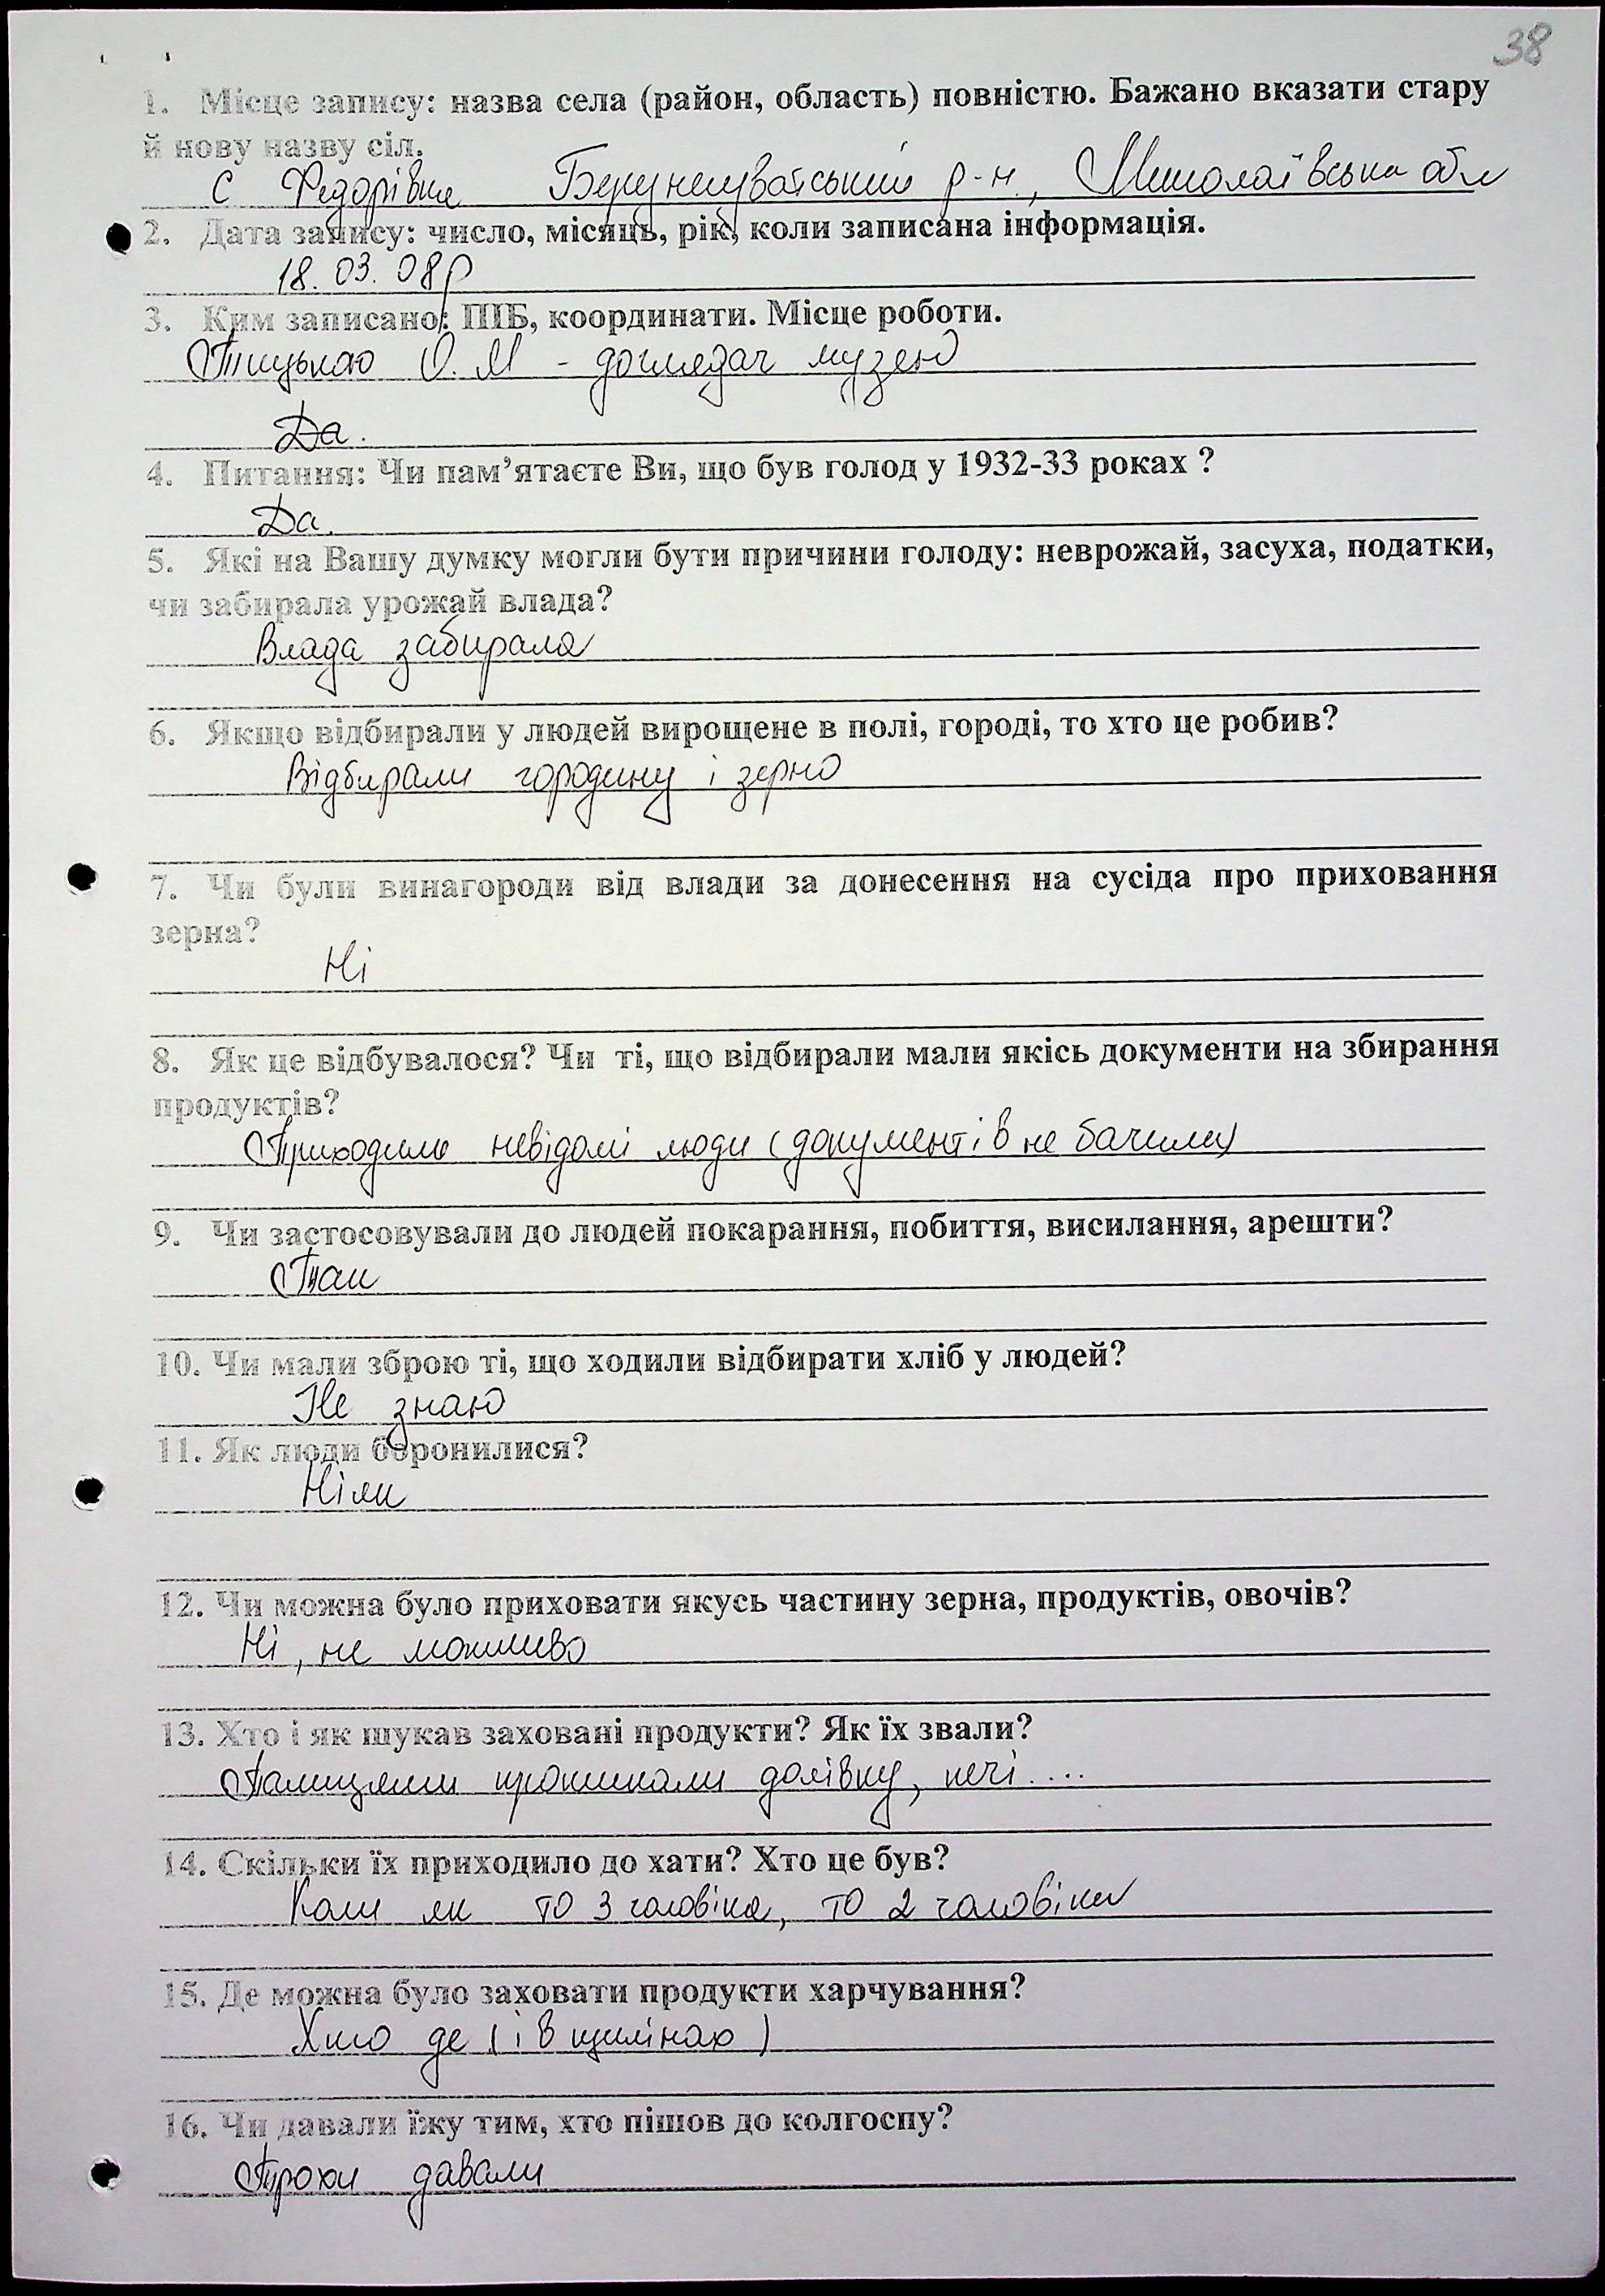 38
1. Місце запису: назва села (район, область) повністю. Бажано вказати стару
й нову назву сіл.
с Федорівка Березнегуватський р-н., Миколаївська обл
2. Дата запису: число, місяць, рік, коли записана інформація.
18.03.08р
3. Ким записано: ПІБ, координати. Місце роботи.
О.М - доглядач музею
Да.
4. Питання: Чи пам’ятаєте Ви, що був голод у 1932-33 роках ?
Да.
5. Які на Вашу думку могли бути причини голоду: неврожай, засуха, податки,
чи забирала урожай влада?
Влада забирала
6. Якщо відбирали у людей вирощене в полі, городі, то хто це робив?
Відбирали городину і зерно
7. Чи були винагороди від влади за донесення на сусіда про приховання
зерна?
Ні
8. Як це відбувалося? Чи ті, що відбирали мали якісь документи на збирання
продуктів?
Приходили невідомі люди (документів не бачили)
9. Чи застосовували до людей покарання, побиття, висилання, арешти?
Так
10. Чи мали зброю ті, що ходили відбирати хліб у людей?
Не знаю
11. Як люди боронилися?
Ніяк
12. Чи можна було приховати якусь частину зерна, продуктів, овочів?
Ні, не можливо
13. Хто і як шукав заховані продукти? Як їх звали?
Палицями протикали долівку, печі....
14. Скільки їх приходило до хати? Хто це був?
Коли як то 3 чоловіка, то 2 чоловіки
15. Де можна було заховати продукти харчування?
Хто де (і в щилінах)
16. Чи давали їжу тим, хто пішов до колгоспу?
Трохи давали